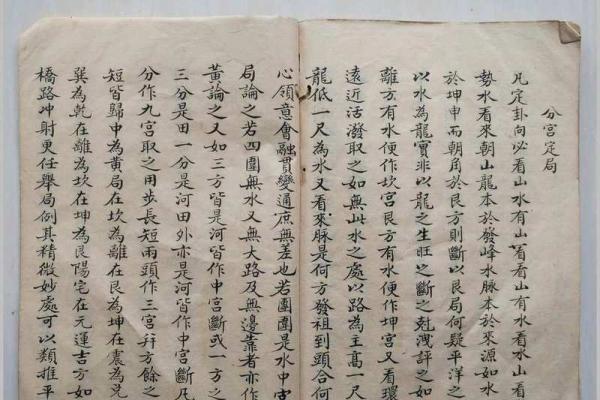 分宮定局
凡定卦向必看山水有山看山有水看水山看
勢水看來朝山龍本於發峰水脉本於來源如水
於坤申而朝角於艮方則斷以艮局何疑平洋之
以水為龍實非以龍之生旺之斷之剋洩評之如
離方有水便作坎宮艮方有水便作坤宮又看環
遠近活潑取之如無此水之處以路為主高一尺
龍低一尺為水又看來脉是何方發祖到頭合何
心領意會融貫變通庶無差也若團圍是水中宮
局論之若四圍無水又無大路及無邊靠者亦作
黃論之又如三方皆是河皆作中宮斷或一方之
三分是田一分是河田外亦是河皆作中宮斷及
分作九宮取之用步長短兩頭作三宮幷方餘之
短皆歸中為黃局在坎為離在艮為坤在震為兌
巽為乾在離為坎在坤為艮陽宅在元運吉方如
橋路冲射更任舉局例其精微妙處可以類推平